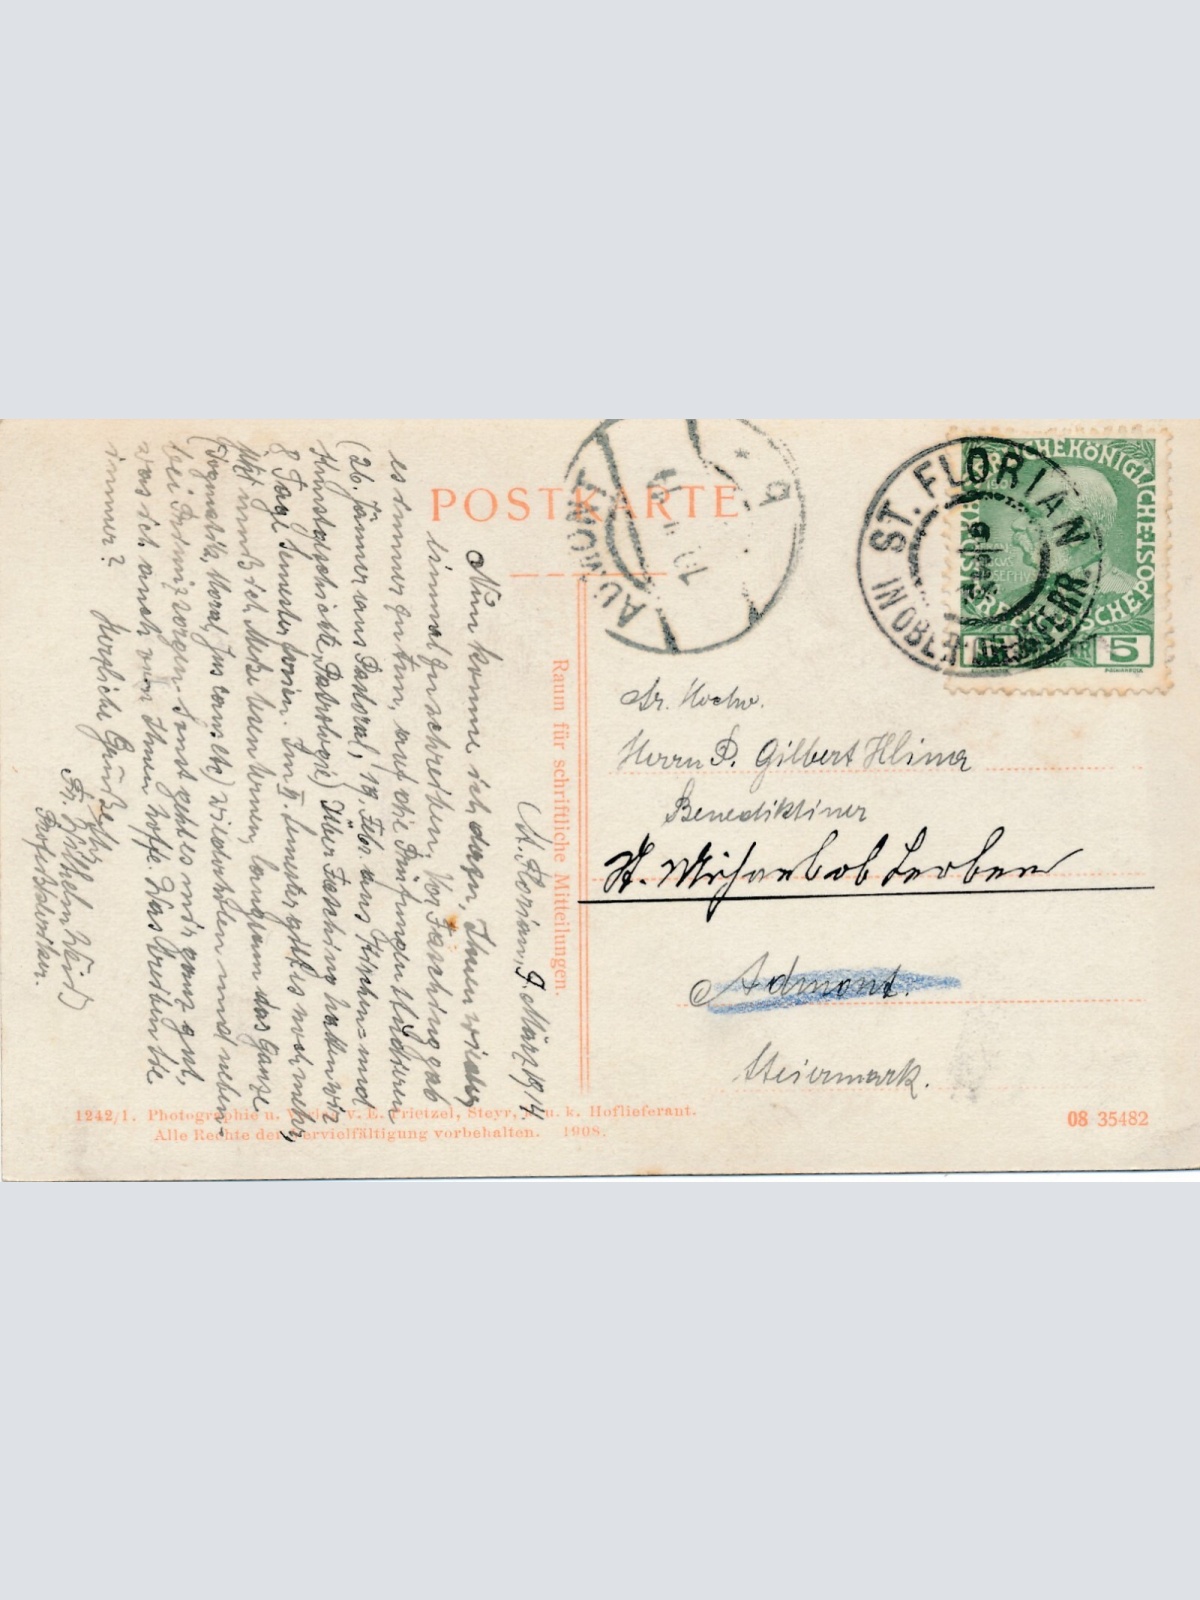 POSTKARTE
ST. FLORIAN
IN OBER-ÖSTERR.
ADMONT
5
St. Florian, 9. März 1914
Nun komme ich dazu, Ihnen wieder
einmal zu schreiben. Vor Fasching gab
es immer zu tun, auf die Prüfungen studieren
(26. Jänner aus Pastoral, 19. Febr. aus Kirchen- und
Kunstgeschichte, Patrologie). Über Fasching hatten wir
8 Tage Semesterferien. Im II. Semester gibt's noch mehr,
jetzt muß ich Mette lernen, langsam das Ganze
(Dogmatik, Moral, Jus can. etc) wiederholen und neben-
bei Primizsorgen. Sonst geht es mir ganz gut,
was ich auch von Ihnen hoffe. Was treiben Sie
immer?
Herzliche Grüße
Ihr
Fr. Wilhelm
Professkleriker.
Raum für schriftliche Mitteilungen.
Sr. Hochw.
Herrn P. Gilbert Hlina
Benediktiner
St. Michael ob Leoben
Admont.
Steiermark.
1242/1. Photographie u. Verlag v. E. Prietzel, Steyr, k. u. k. Hoflieferant.
Alle Rechte der Vervielfältigung vorbehalten. 1908.
08 35482